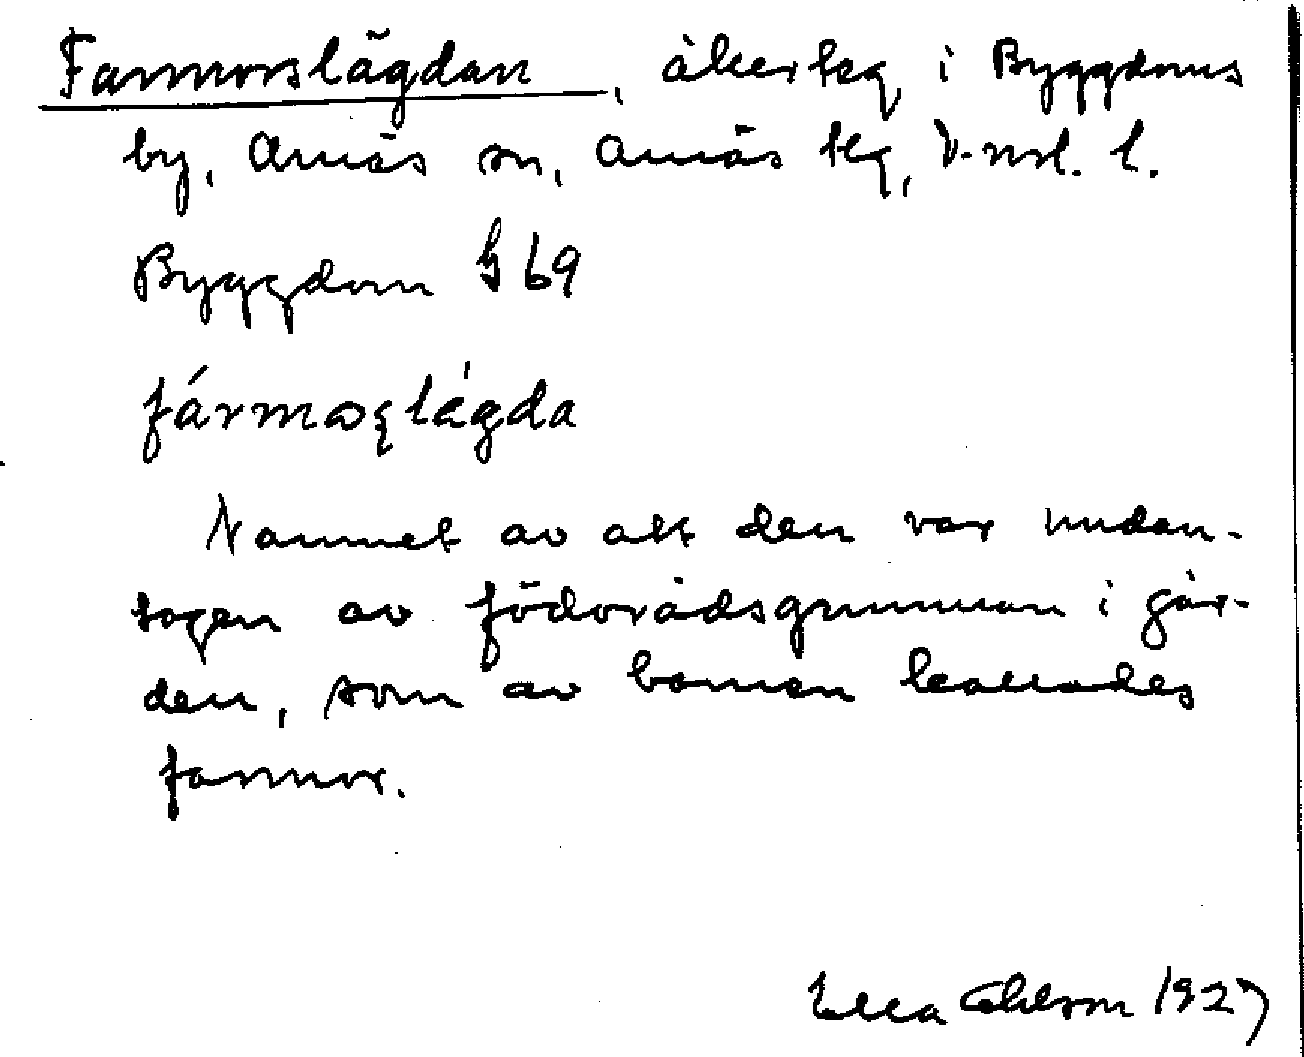 Farmorslägdan, åkerteg i Byggdoms
by, Arnäs sn, Arnäs tlg, V-nrl. l.
Byggdom § 69
fármoșlǻgda
Namnet av att den var undan-
tagen av födorådsgumman i går-
den, som av barnen kallades
farmor.
Ella Ohlson 1927